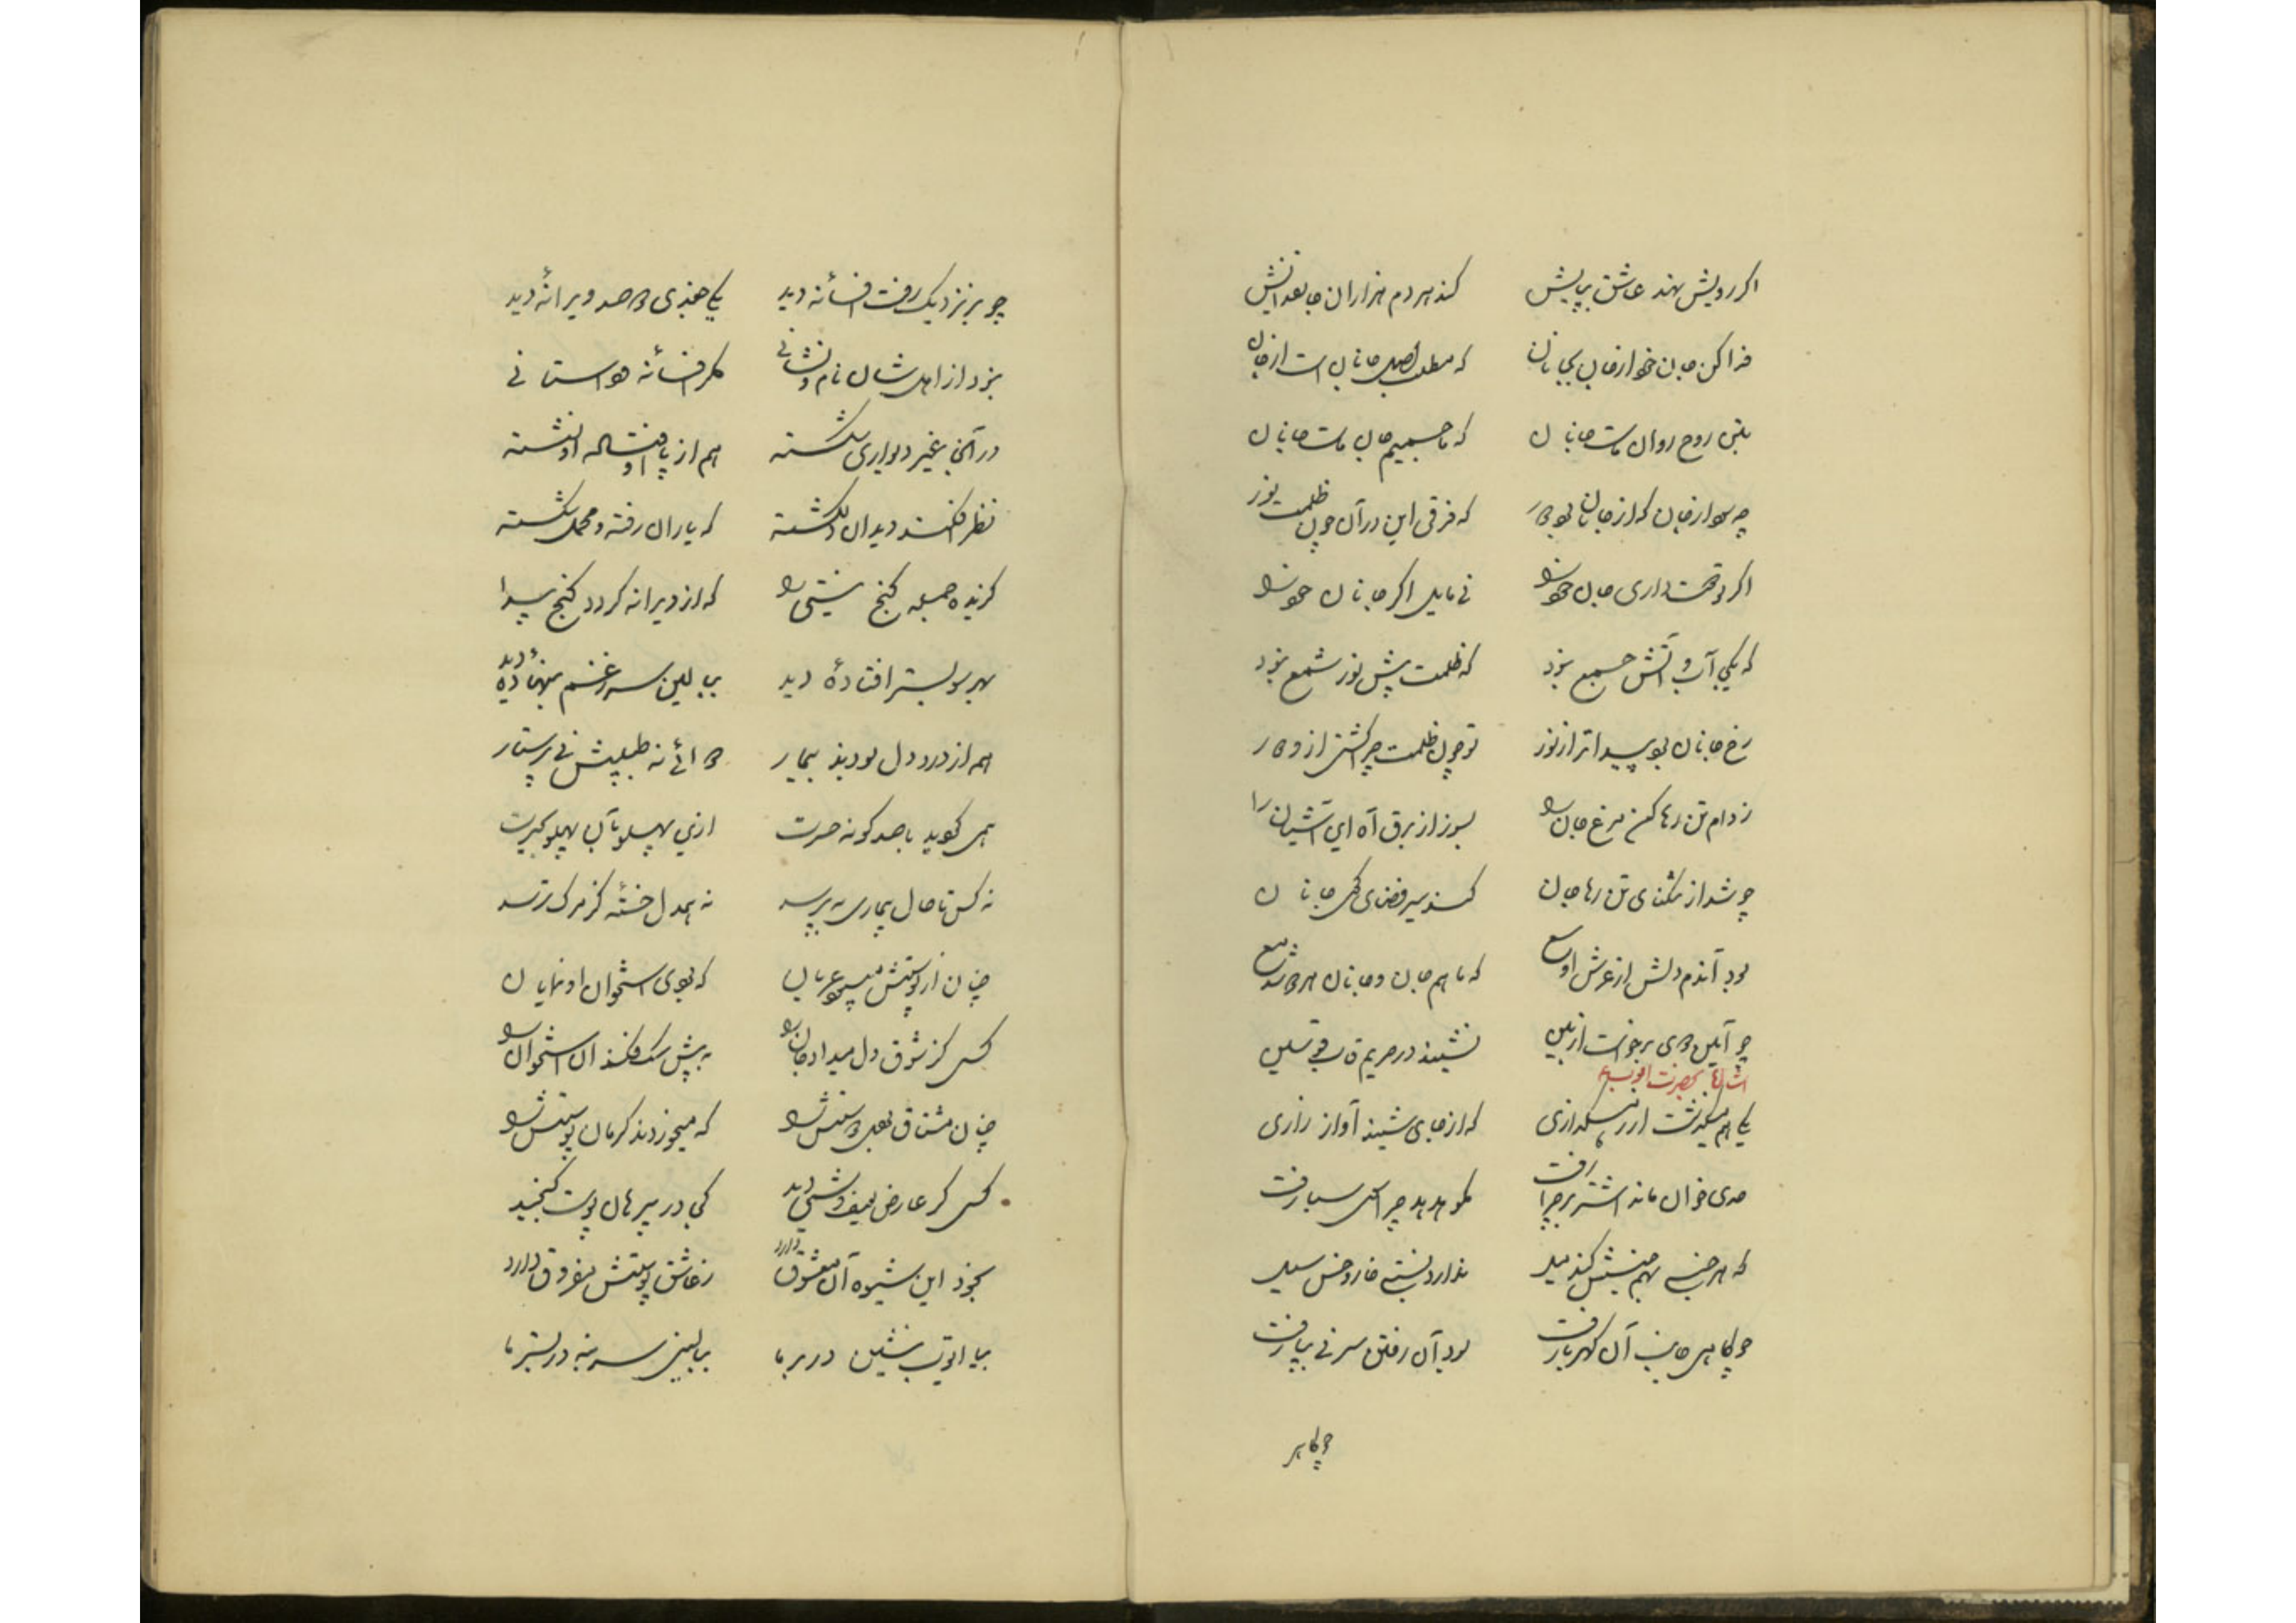 اگر رویش نهد عاشق بپایش کند هر دم هزاران جان فدایش
فدا کن جان خود از جان بجانان که مطلب اصل جانان است از جان
بتن روح روان ماست جانان که ما جسمیم جان ماست جانان
چه سود از جان که از جانان بود دور که فرقی این در آن چون ظلمت نور
اگر دوست داری جان خود را نی مایل اگر جانان خود را
که یکجا آب و آتش جمع نبود که ظلمت پیش نور شمع نبود
رخ جانان بود پیدا تر از نور تو چون ظلمت چرا گشتی از او دور
ز دام تن رها کن مرغ جان را بسوز از برق آه این آشیان را
چو شد از تنگنای تن رها جان کند سیر فضای کوی جانان
بود آندم دلش از عرش اوسع که با هم جان و جانان هر دو شد مع
چو آیین دوی برخواست از بین نشیند در حریم قاب قوسین
یکی هم میگذشت از رهگذاری که از جای شنید آواز زاری
حدی خوان ماند اشتر بر چرا رفت بگو هدهد چرا سوی سبا رفت
که هر جنسی بهم جنسش کند میل ندارد نسبتی خار و خس سیل
چو کاهی جانب آن کهربا رفت بود آن رفتن سر نی بپا رفت
چو کاهی
چو بر نزدیک رفت افسانه دید یکی جغدی و صد ویرانه دید
نبود از اهل شان نام و نشانی مگر افسانه دواستانی
در آنجا بغیر دیواری شکسته هم از پا اوفتاده او نشسته
نظر افکند دید آن دلشکسته که یاران رفته و محمل شکسته
گزیده جمله کنج نیستی را که از ویرانه گردد گنج پیدا
بهر سو بستر افتاده دید ببالین سر ز غم بنهاده دید
هم از درد دل بودند بیمار دوائی نه طبیبش نی پرستار
همی گوید با صد گونه حسرت ازین پهلو بآن پهلو بحیرت
نه کس تا حال بیماری بپرسد نه همدل خسته کز مرگ ترسد
چنان از پوستش میبود عریان که بودی استخوان او نمایان
کسی کز شوق دل میداد جان را به پیش سگ فکند آن استخوان را
چنان مشتاق لعل دوستش را که میخوردند کرمان پوستش را
کسی کز عارض یوسف وشی دید کی در پیرهان پوست گنجید
بخود این شیوه آن معشوق دارد ز عاشق پوستش مفروق دارد
بیا ایوب بنشین در بر ما ببالین سر بنه در بستر ما